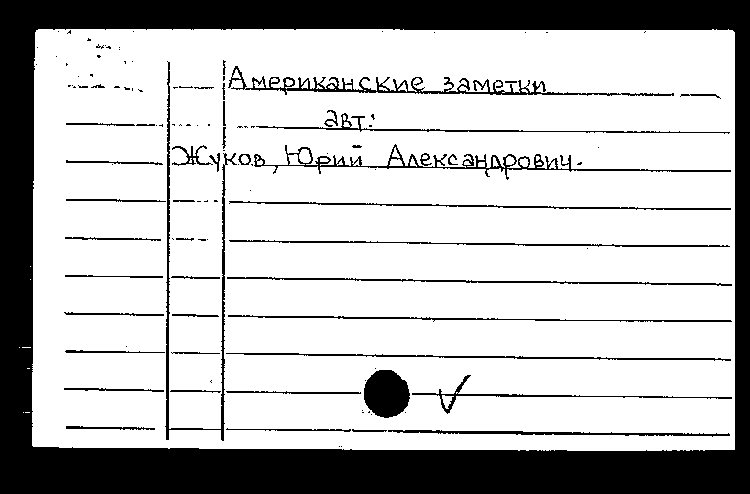 Американские заметки
авт:
Жуков, Юрий Александрович.